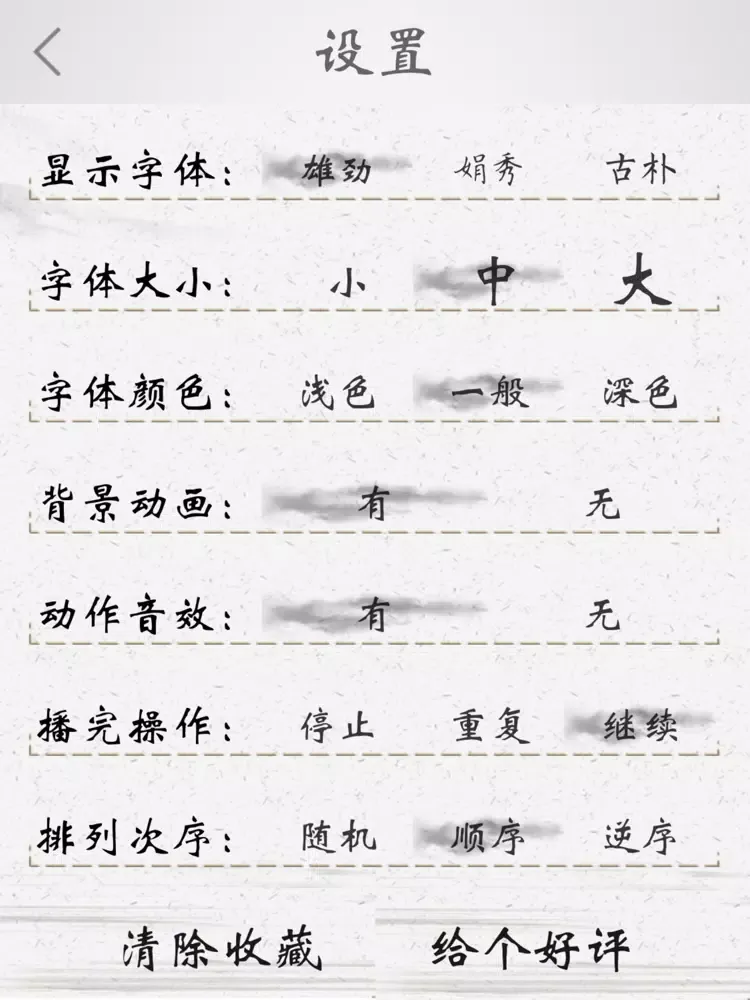 设置
显示字体： 雄劲 娟秀 古朴
字体大小： 小 中 大
字体颜色： 浅色 一般 深色
背景动画： 有 无
动作音效： 有 无
播完操作： 停止 重复 继续
排列次序： 随机 顺序 逆序
清除收藏 给个好评